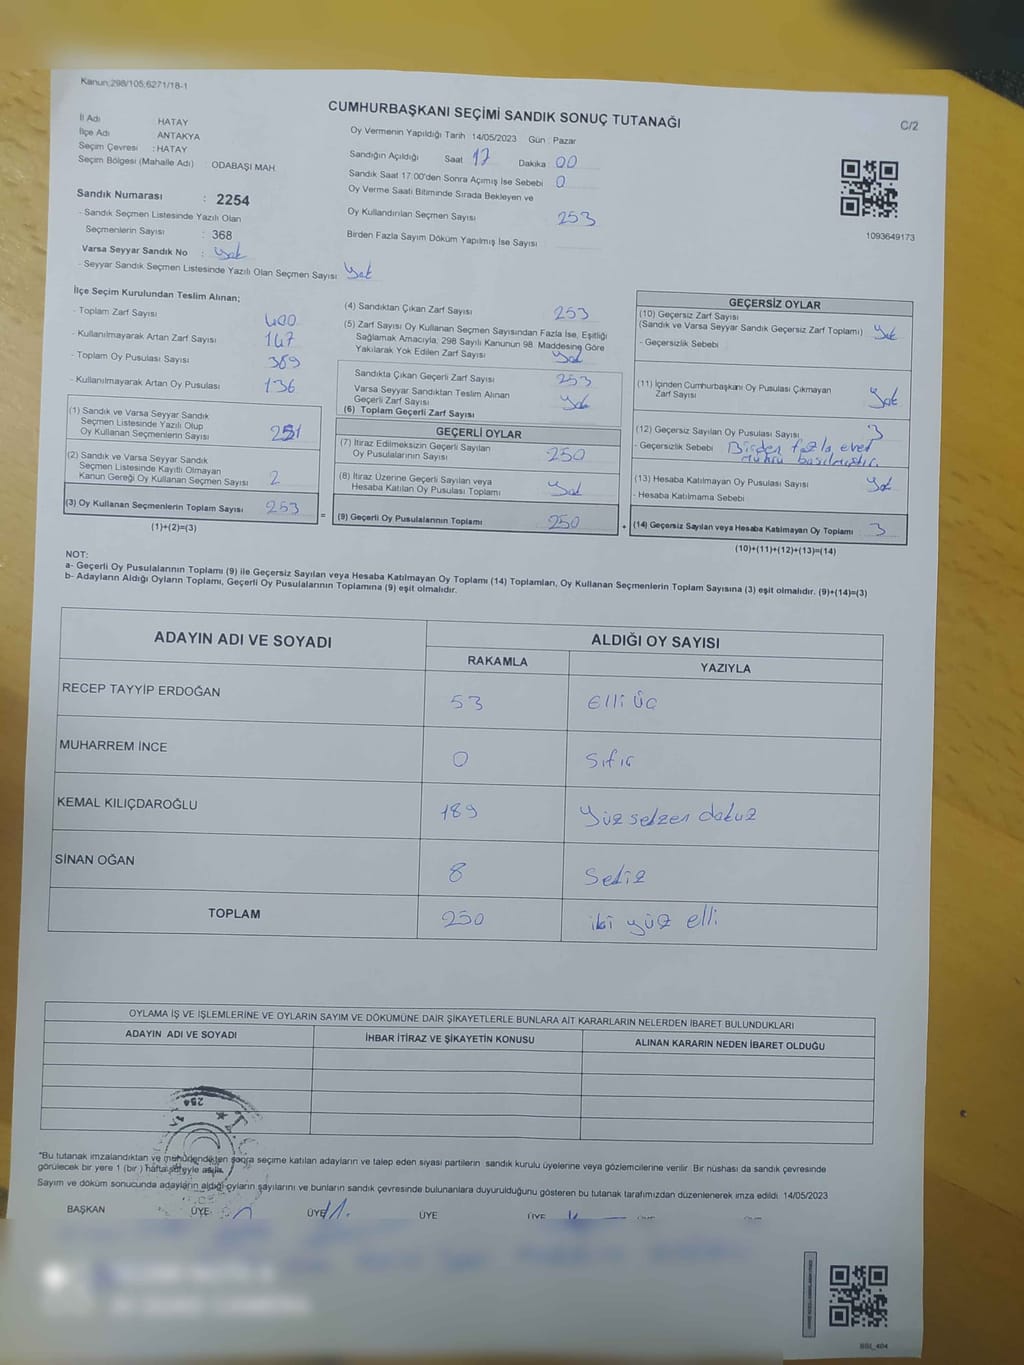 Kanun:298/105;6271/18-1
CUMHURBAŞKANI SEÇİMİ SANDIK SONUÇ TUTANAĞI
C/2
İl Adı HATAY
İlçe Adı ANTAKYA
Seçim Çevresi : HATAY
Seçim Bölgesi (Mahalle Adı) : ODABAŞI MAH.
Oy Vermenin Yapıldığı Tarih 14/05/2023 Gün Pazar
Sandığın Açıldığı Saat 17 Dakika 00
Sandık Saat 17:00'den Sonra Açılmış İse Sebebi 0
Oy Verme Saati Bitiminde Sırada Bekleyen ve
Oy Kullandırılan Seçmen Sayısı 253
Birden Fazla Sayım Döküm Yapılmış İse Sayısı
1093649173
Sandık Numarası : 2254
- Sandık Seçmen Listesinde Yazılı Olan
Seçmenlerin Sayısı : 368
Varsa Seyyar Sandık No : Yok
- Seyyar Sandık Seçmen Listesinde Yazılı Olan Seçmen Sayısı Yok
İlçe Seçim Kurulundan Teslim Alınan;
- Toplam Zarf Sayısı 400
- Kullanılmayarak Artan Zarf Sayısı 147
- Toplam Oy Pusulası Sayısı 389
- Kullanılmayarak Artan Oy Pusulası 136
(1) Sandık ve Varsa Seyyar Sandık
Seçmen Listesinde Yazılı Olup
Oy Kullanan Seçmenlerin Sayısı 251
(2) Sandık ve Varsa Seyyar Sandık
Seçmen Listesinde Kayıtlı Olmayan
Kanun Gereği Oy Kullanan Seçmen Sayısı 2
(3) Oy Kullanan Seçmenlerin Toplam Sayısı 253
(1)+(2)=(3)
(4) Sandıktan Çıkan Zarf Sayısı 253
(5) Zarf Sayısı Oy Kullanan Seçmen Sayısından Fazla İse, Eşitliği
Sağlamak Amacıyla; 298 Sayılı Kanunun 98. Maddesine Göre
Yakılarak Yok Edilen Zarf Sayısı Yok
Sandıkta Çıkan Geçerli Zarf Sayısı 253
Varsa Seyyar Sandıktan Teslim Alınan
Geçerli Zarf Sayısı Yok
(6) Toplam Geçerli Zarf Sayısı
GEÇERLİ OYLAR
(7) İtiraz Edilmeksizin Geçerli Sayılan
Oy Pusulalarının Sayısı 250
(8) İtiraz Üzerine Geçerli Sayılan veya
Hesaba Katılan Oy Pusulası Toplamı Yok
= (9) Geçerli Oy Pusulalarının Toplamı 250 +
GEÇERSİZ OYLAR
(10) Geçersiz Zarf Sayısı
(Sandık ve Varsa Seyyar Sandık Geçersiz Zarf Toplamı) Yok
- Geçersizlik Sebebi
(11) İçinden Cumhurbaşkanı Oy Pusulası Çıkmayan
Zarf Sayısı Yok
(12) Geçersiz Sayılan Oy Pusulası Sayısı 3
- Geçersizlik Sebebi Birden fazla evet
mührü basılmıştır.
(13) Hesaba Katılmayan Oy Pusulası Sayısı Yok
- Hesaba Katılmama Sebebi
(14) Geçersiz Sayılan veya Hesaba Katılmayan Oy Toplamı 3
(10)+(11)+(12)+(13)=(14)
NOT:
a- Geçerli Oy Pusulalarının Toplamı (9) ile Geçersiz Sayılan veya Hesaba Katılmayan Oy Toplamı (14) Toplamları, Oy Kullanan Seçmenlerin Toplam Sayısına (3) eşit olmalıdır. (9)+(14)=(3)
b- Adayların Aldığı Oyların Toplamı, Geçerli Oy Pusulalarının Toplamına (9) eşit olmalıdır.
ADAYIN ADI VE SOYADI ALDIĞI OY SAYISI
RAKAMLA YAZIYLA
RECEP TAYYİP ERDOĞAN 53 Elli Üç
MUHARREM İNCE 0 Sıfır
KEMAL KILIÇDAROĞLU 189 Yüz seksen dokuz
SİNAN OĞAN 8 Sekiz
TOPLAM 250 iki yüz elli
OYLAMA İŞ VE İŞLEMLERİNE VE OYLARIN SAYIM VE DÖKÜMÜNE DAİR ŞİKAYETLERLE BUNLARA AİT KARARLARIN NELERDEN İBARET BULUNDUKLARI
ADAYIN ADI VE SOYADI İHBAR İTİRAZ VE ŞİKAYETİN KONUSU ALINAN KARARIN NEDEN İBARET OLDUĞU
*Bu tutanak imzalandıktan ve mühürlendikten sonra seçime katılan adayların ve talep eden siyasi partilerin sandık kurulu üyelerine veya gözlemcilerine verilir. Bir nüshası da sandık çevresinde
görülecek bir yere 1 (bir) hafta süreyle asılır.
Sayım ve döküm sonucunda adayların aldığı oyların sayılarını ve bunların sandık çevresinde bulunanlara duyurulduğunu gösteren bu tutanak tarafımızdan düzenlenerek imza edildi. 14/05/2023
BAŞKAN ÜYE ÜYE ÜYE ÜYE